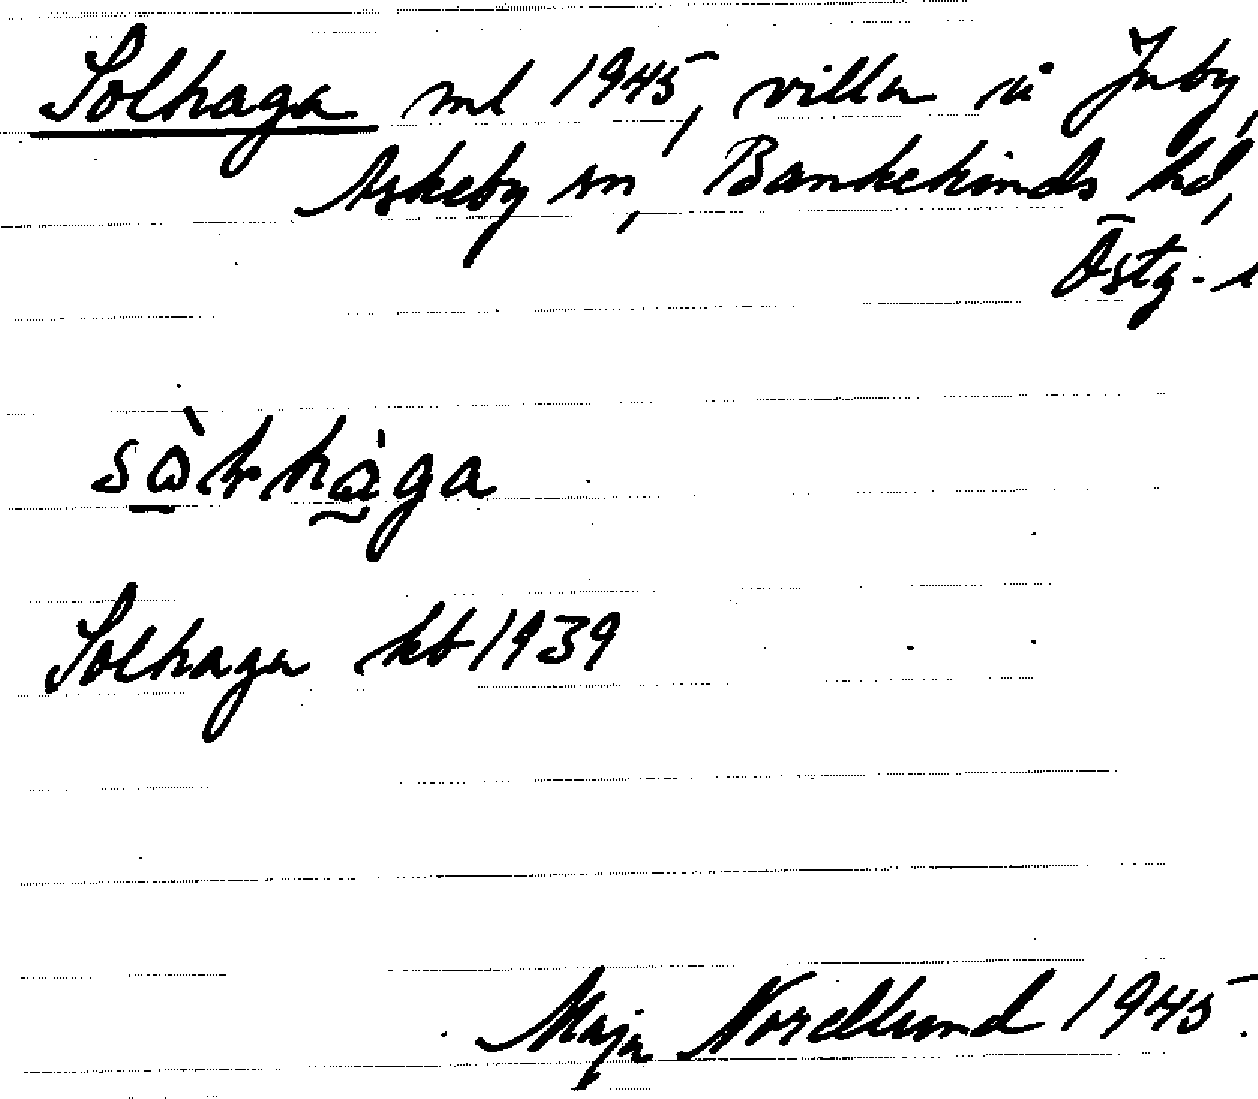 Solhaga ml 1945, villa i Juby,
Askeby sn, Bankekinds hd,
Östg.
Solhaga kb 1939
Maja Nordlund 1945.